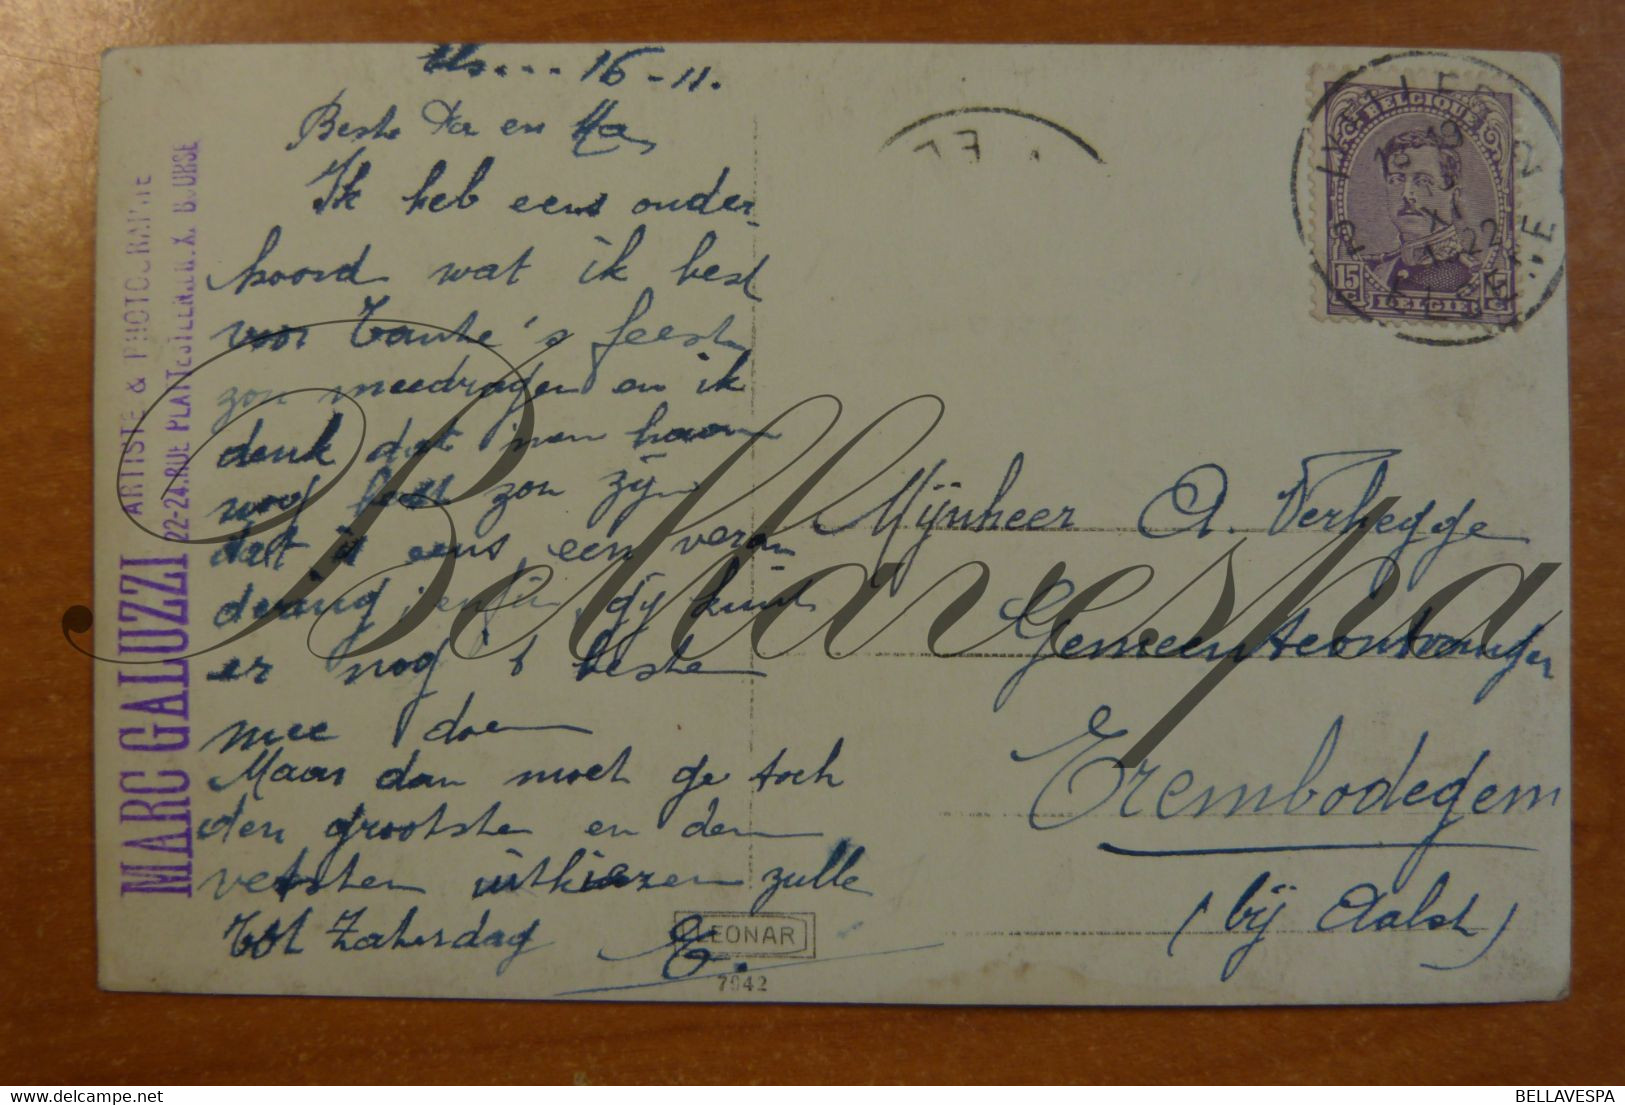 16-11.
Beste Pa en Ma
Ik heb eens onder-
hoord wat ik best
voor Tante's feest
zou meedragen en ik
denk dat men
zou zijn
dat is eens een veran
dering, enfin, gij kunt
er nog 't beste
mee doen
Maar dan moet ge toch
den grootsten en den
vetsten uitkiezen zulle
Tot Zaterdag E.
MARC GALUZZI
ARTISTE & PHOTOGRAPHE
22-24.RUE BRUX. BOURSE
LEONAR
7942
BELGIQUE
15
BELGIE
XI
22
Mijnheer A. Verhegge
Gemeenteontvanger
Erembodegem
(bij Aalst)
Bellavespa
BELLAVESPA